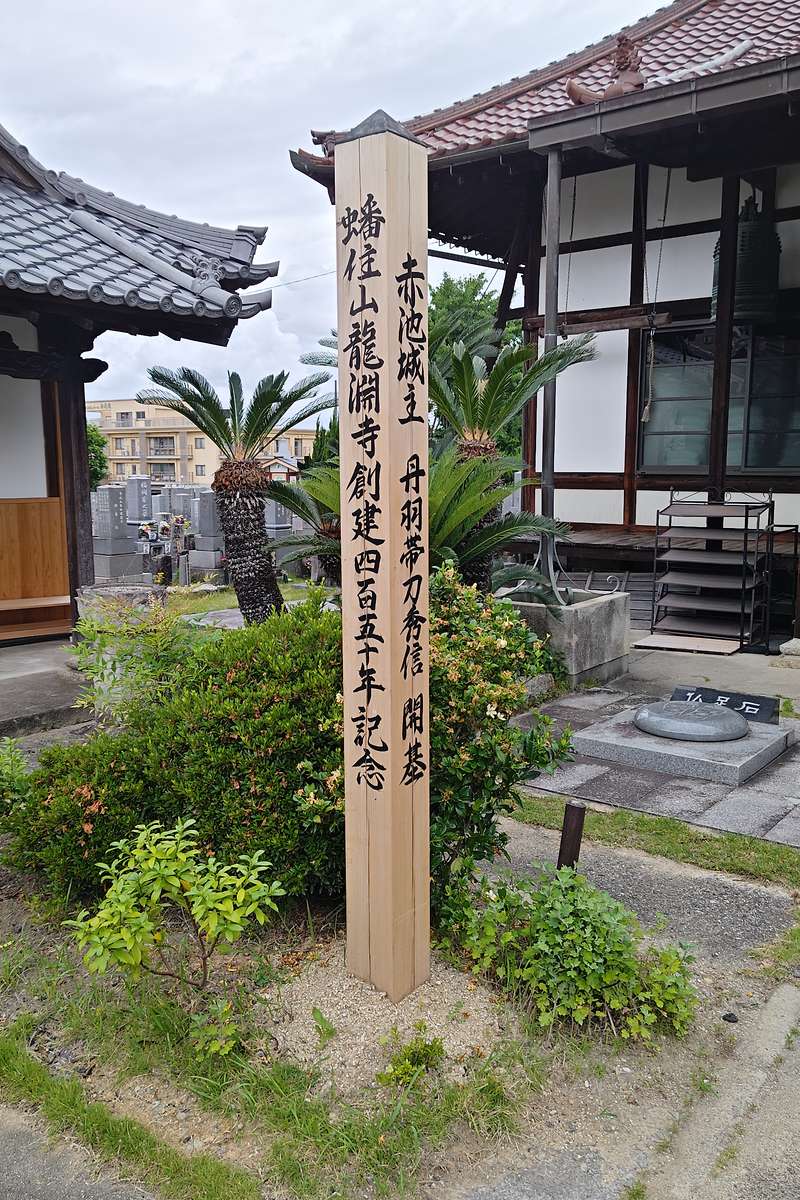 蟠住山龍淵寺創建四百五十年記念
赤池城主 丹羽帯刀秀信 開基
仏足石